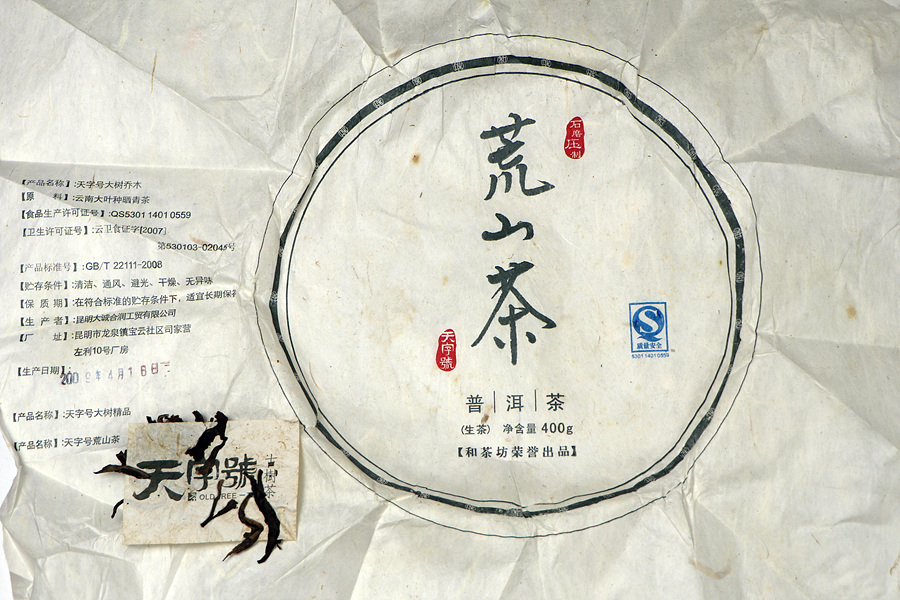 【产品名称】:天字号大树乔木
【原　　料】:云南大叶种晒青茶
【食品生产许可证号】:QS5301 1401 0559
【卫生许可证号】:云卫食证字[2007]
第530103-02045号
【产品标准号】:GB/T 22111-2008
【贮存条件】:清洁、通风、避光、干燥、无异味
【保 质 期】:在符合标准的贮存条件下，适宜长期保存
【生 产 者】:昆明大诚合润工贸有限公司
【厂　　址】:昆明市龙泉镇宝云社区司家营
左利10号厂房
【生产日期】:
2009年4月16日
【产品名称】:天字号大树精品
【产品名称】:天字号荒山茶
天字號
古樹茶
OLD TREE
荒山茶
石磨压制
天字號
质量安全
5301 1401 0559
普｜洱｜茶
(生茶) 净含量 400g
【和茶坊荣誉出品】